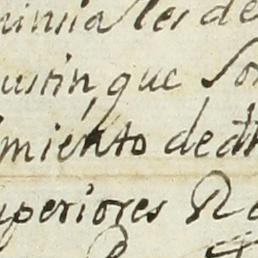 uinsiales de
ustin, que so
imiento de dh
uperiores R